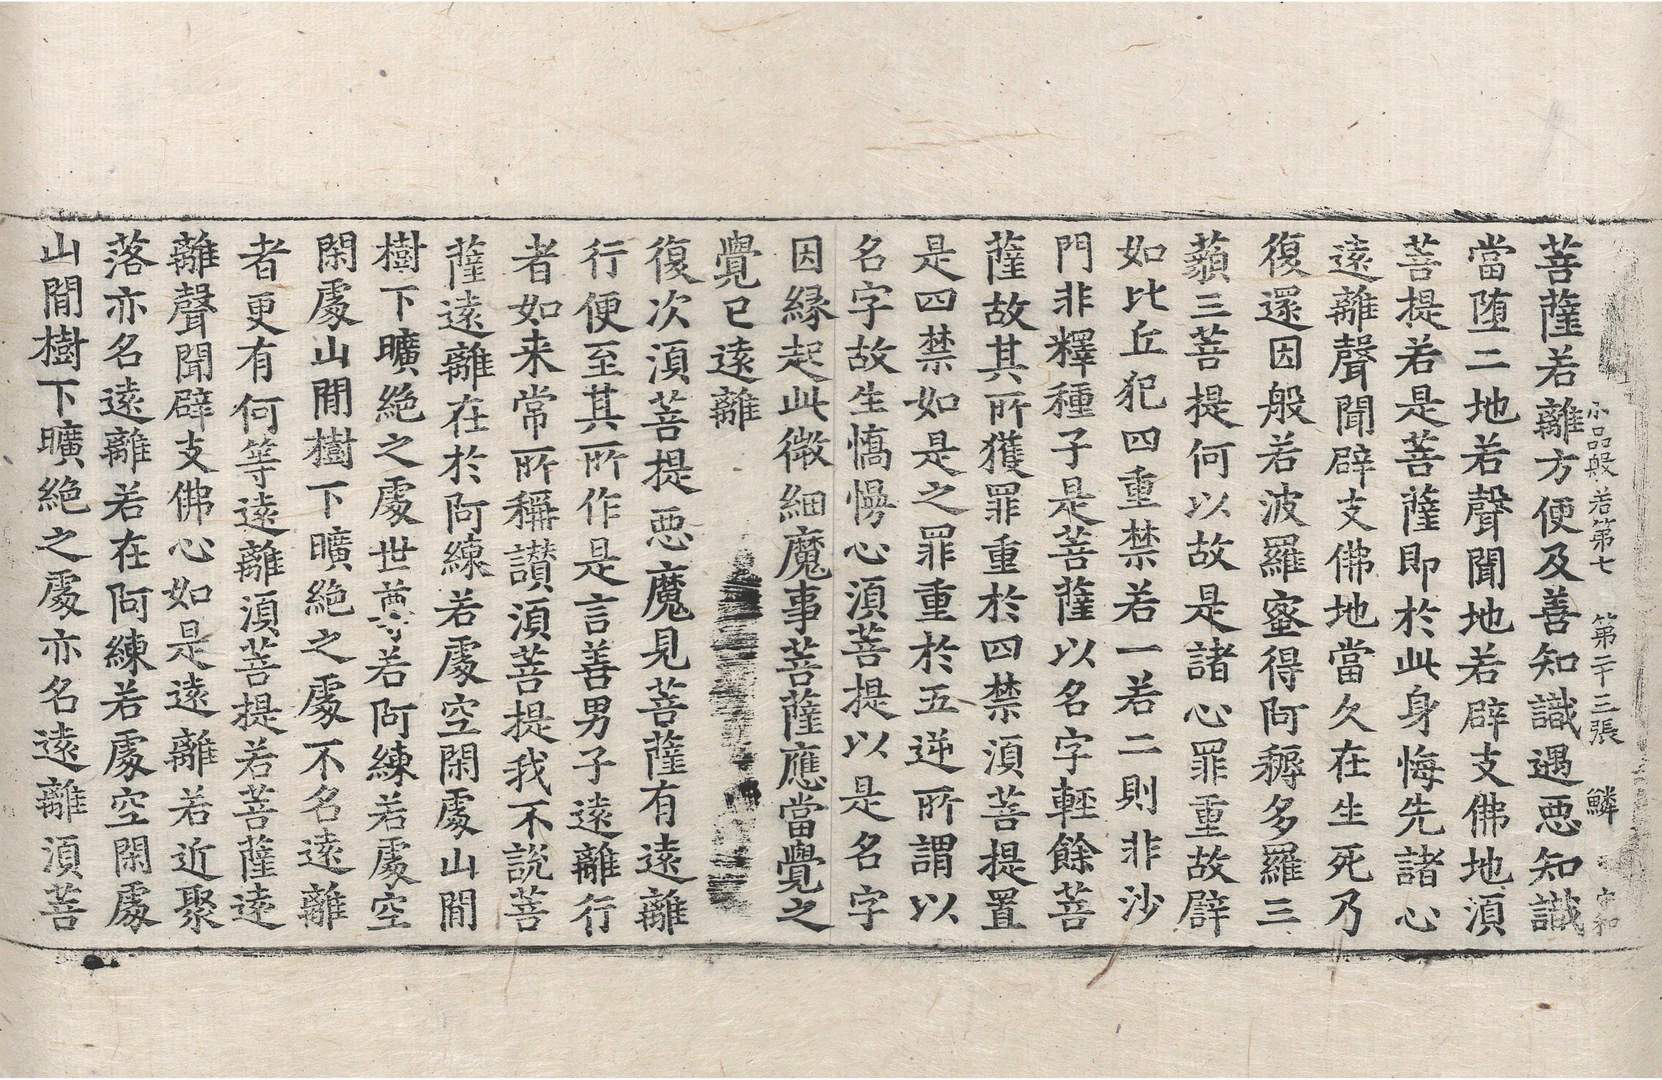 小品般若第七 第二十三張 鱗 守和
菩薩若離方便及善知識遇惡知識
當墮二地若聲聞地若辟支佛地湏
菩提若是菩薩即於此身悔先諸心
遠離聲聞辟支佛地當久在生死乃
復還因般若波羅蜜得阿耨多羅三
藐三菩提何以故是諸心罪重故辟
如比丘犯四重禁若一若二則非沙
門非釋種子是菩薩以名字輕餘菩
薩故其所獲罪重於四禁湏菩提置
是四禁如是之罪重於五逆所謂以
名字故生憍慢心湏菩提以是名字
因緣起此微細魔事菩薩應當覺之
覺已遠離
復次湏菩提惡魔見菩薩有遠離
行便至其所作是言善男子遠離行
者如来常所稱讃湏菩提我不說菩
薩遠離在於阿練若處空閑處山間
樹下曠絶之處世尊若阿練若處空
閑處山間樹下曠絶之處不名遠離
者更有何等遠離湏菩提若菩薩遠
離聲聞辟支佛心如是遠離若近聚
落亦名遠離若在阿練若處空閑處
山間樹下曠絶之處亦名遠離湏菩